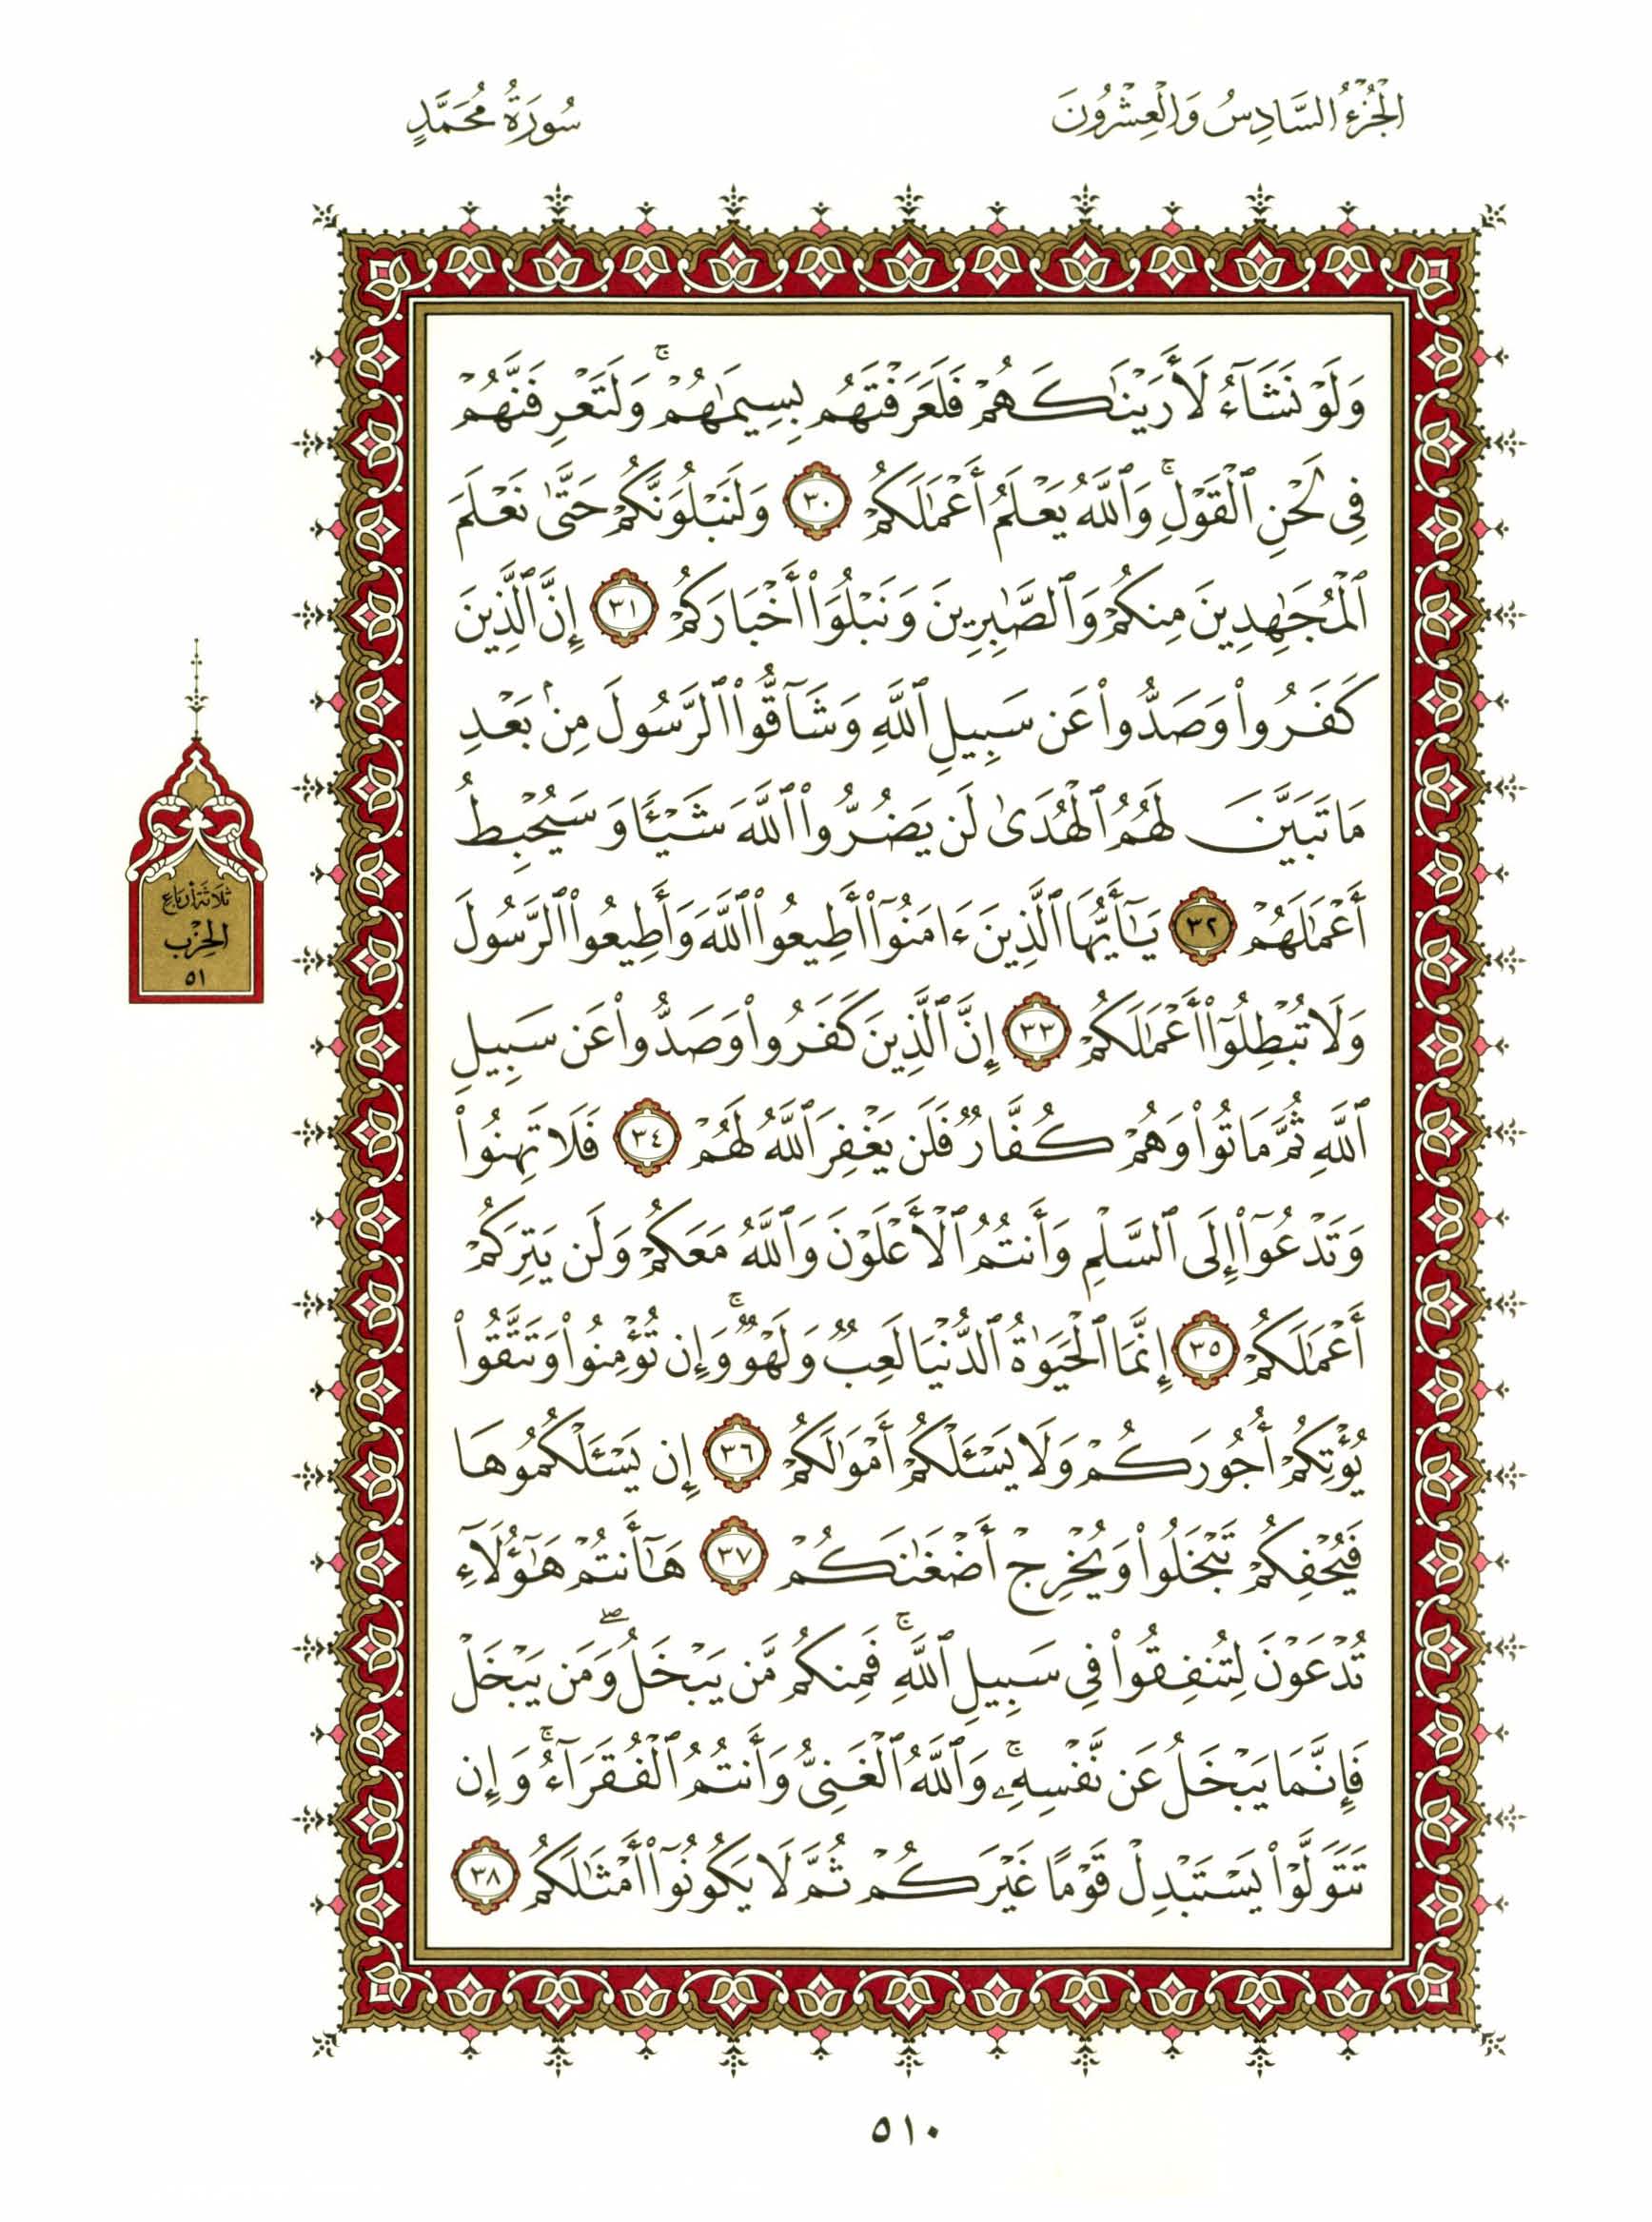 الجُزْءُ السَّادِسُ وَالْعِشْرُونَ
سُورَةُ مُحَمَّدٍ
وَلَوْ نَشَآءُ لَأَرَيْنَٰكَهُمْ فَلَعَرَفْتَهُم بِسِيمَٰهُمْۚ وَلَتَعْرِفَنَّهُمْ
فِى لَحْنِ ٱلْقَوْلِۚ وَٱللَّهُ يَعْلَمُ أَعْمَٰلَكُمْ ٣٠ وَلَنَبْلُوَنَّكُمْ حَتَّىٰ نَعْلَمَ
ٱلْمُجَٰهِدِينَ مِنكُمْ وَٱلصَّٰبِرِينَ وَنَبْلُوَا۟ أَخْبَارَكُمْ ٣١ إِنَّ ٱلَّذِينَ
كَفَرُوا۟ وَصَدُّوا۟ عَن سَبِيلِ ٱللَّهِ وَشَآقُّوا۟ ٱلرَّسُولَ مِنۢ بَعْدِ
مَا تَبَيَّنَ لَهُمُ ٱلْهُدَىٰ لَن يَضُرُّوا۟ ٱللَّهَ شَيْـًٔا وَسَيُحْبِطُ
أَعْمَٰلَهُمْ ٣٢ يَٰٓأَيُّهَا ٱلَّذِينَ ءَامَنُوٓا۟ أَطِيعُوا۟ ٱللَّهَ وَأَطِيعُوا۟ ٱلرَّسُولَ
وَلَا تُبْطِلُوٓا۟ أَعْمَٰلَكُمْ ٣٣ إِنَّ ٱلَّذِينَ كَفَرُوا۟ وَصَدُّوا۟ عَن سَبِيلِ
ٱللَّهِ ثُمَّ مَاتُوا۟ وَهُمْ كُفَّارٌ فَلَن يَغْفِرَ ٱللَّهُ لَهُمْ ٣٤ فَلَا تَهِنُوا۟
وَتَدْعُوٓا۟ إِلَى ٱلسَّلْمِ وَأَنتُمُ ٱلْأَعْلَوْنَ وَٱللَّهُ مَعَكُمْ وَلَن يَتِرَكُمْ
أَعْمَٰلَكُمْ ٣٥ إِنَّمَا ٱلْحَيَوٰةُ ٱلدُّنْيَا لَعِبٌ وَلَهْوٌۚ وَإِن تُؤْمِنُوا۟ وَتَتَّقُوا۟
يُؤْتِكُمْ أُجُورَكُمْ وَلَا يَسْـَٔلْكُمْ أَمْوَٰلَكُمْ ٣٦ إِن يَسْـَٔلْكُمُوهَا
فَيُحْفِكُمْ تَبْخَلُوا۟ وَيُخْرِجْ أَضْغَٰنَكُمْ ٣٧ هَٰٓأَنتُمْ هَٰٓؤُلَآءِ
تُدْعَوْنَ لِتُنفِقُوا۟ فِى سَبِيلِ ٱللَّهِۚ فَمِنكُم مَّن يَبْخَلُۖ وَمَن يَبْخَلْ
فَإِنَّمَا يَبْخَلُ عَن نَّفْسِهِۦۚ وَٱللَّهُ ٱلْغَنِىُّ وَأَنتُمُ ٱلْفُقَرَآءُۚ وَإِن
تَتَوَلَّوْا۟ يَسْتَبْدِلْ قَوْمًا غَيْرَكُمْ ثُمَّ لَا يَكُونُوٓا۟ أَمْثَٰلَكُم ٣٨
ثَلَاثَةُ أَرْبَاع
الحِزْب
٥١
٥١٠